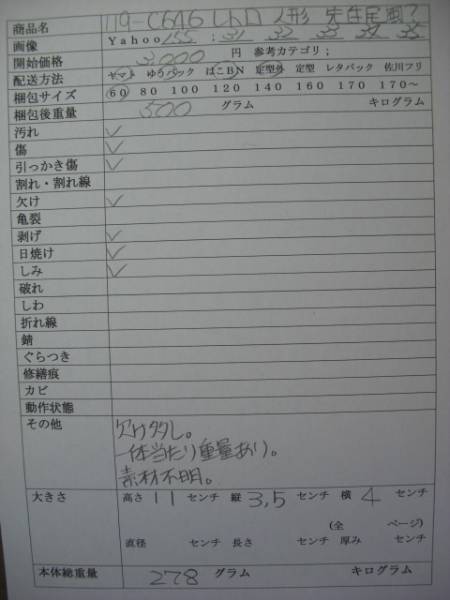 商品名 119-C646 レトロ 人形 先住民風?
画像 Yahoo 155 : 31 32 33 34 35
開始価格 3,000 円 参考カテゴリ；
配送方法 ヤマト ゆうパック はこBN 定型外 定型 レタパック 佐川フリ
梱包サイズ 60 80 100 120 140 160 170 170〜
梱包後重量 500 グラム キログラム
汚れ ✓
傷 ✓
引っかき傷 ✓
割れ・割れ線
欠け ✓
亀裂
剥げ ✓
日焼け ✓
しみ ✓
破れ
しわ
折れ線
錆
ぐらつき
修繕痕
カビ
動作状態
その他
欠け多し。
一体当たり重量あり。
素材不明。
大きさ 高さ 11 センチ 縦 3,5 センチ 横 4 センチ
(全 ページ)
直径 センチ 長さ センチ 厚み センチ
本体総重量 278 グラム キログラム